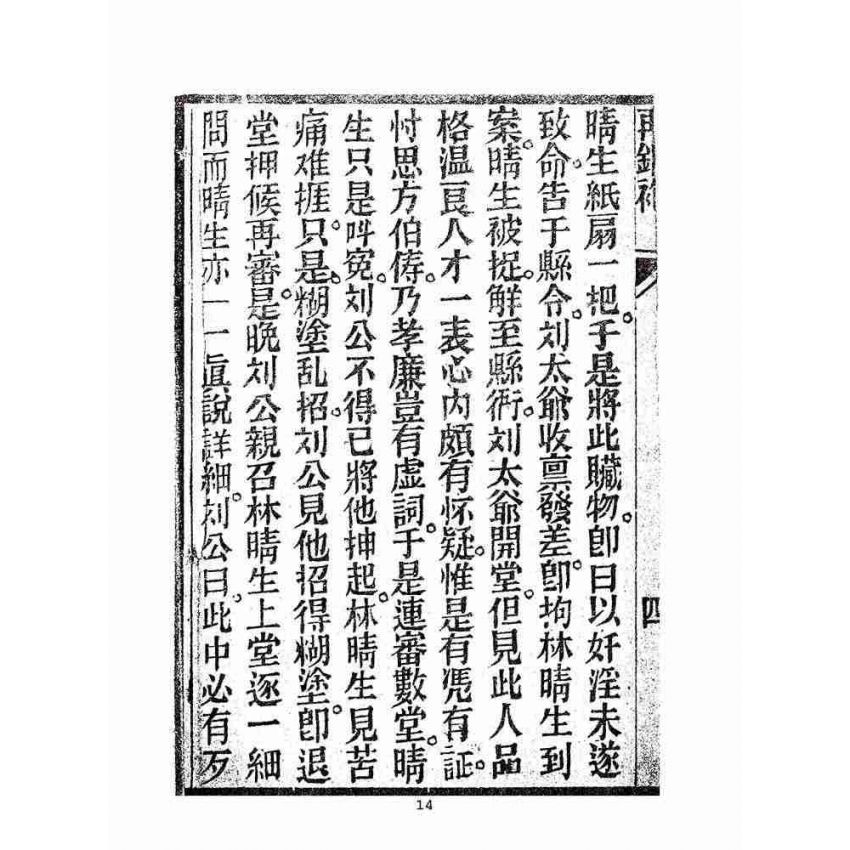 晴生紙扇一把。于是將此贜物。卽日以奸淫未遂
致命。告于縣令。刘太爺收禀發差。卽拘林晴生到
案。晴生被捉。觧至縣衙。刘太爺開堂。但見此人品
格温良人才一表心内頗有怀疑。惟是有凴有証。
忖思方伯俦。乃孝廉豈有虚詞。于是連審數堂。晴
生只是呌寃。刘公不得已將他抻起。林晴生見苦
痛难捱。只是。糊塗乱招。刘公見他招得糊塗。卽退
堂押候再審。是晚刘公親召林晴生上堂逐一細
問而晴生亦一一眞說詳細。刘公曰。此中必有歹
四
14